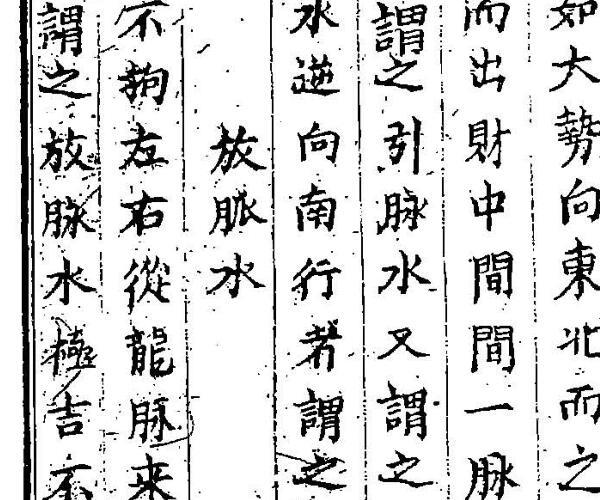 如大勢向東北而之
而出財中間間一脉
謂之引脉水又謂之
水逆向南行者謂之
放脈水
不拘左右從龍脉来
謂之放脉水極吉不